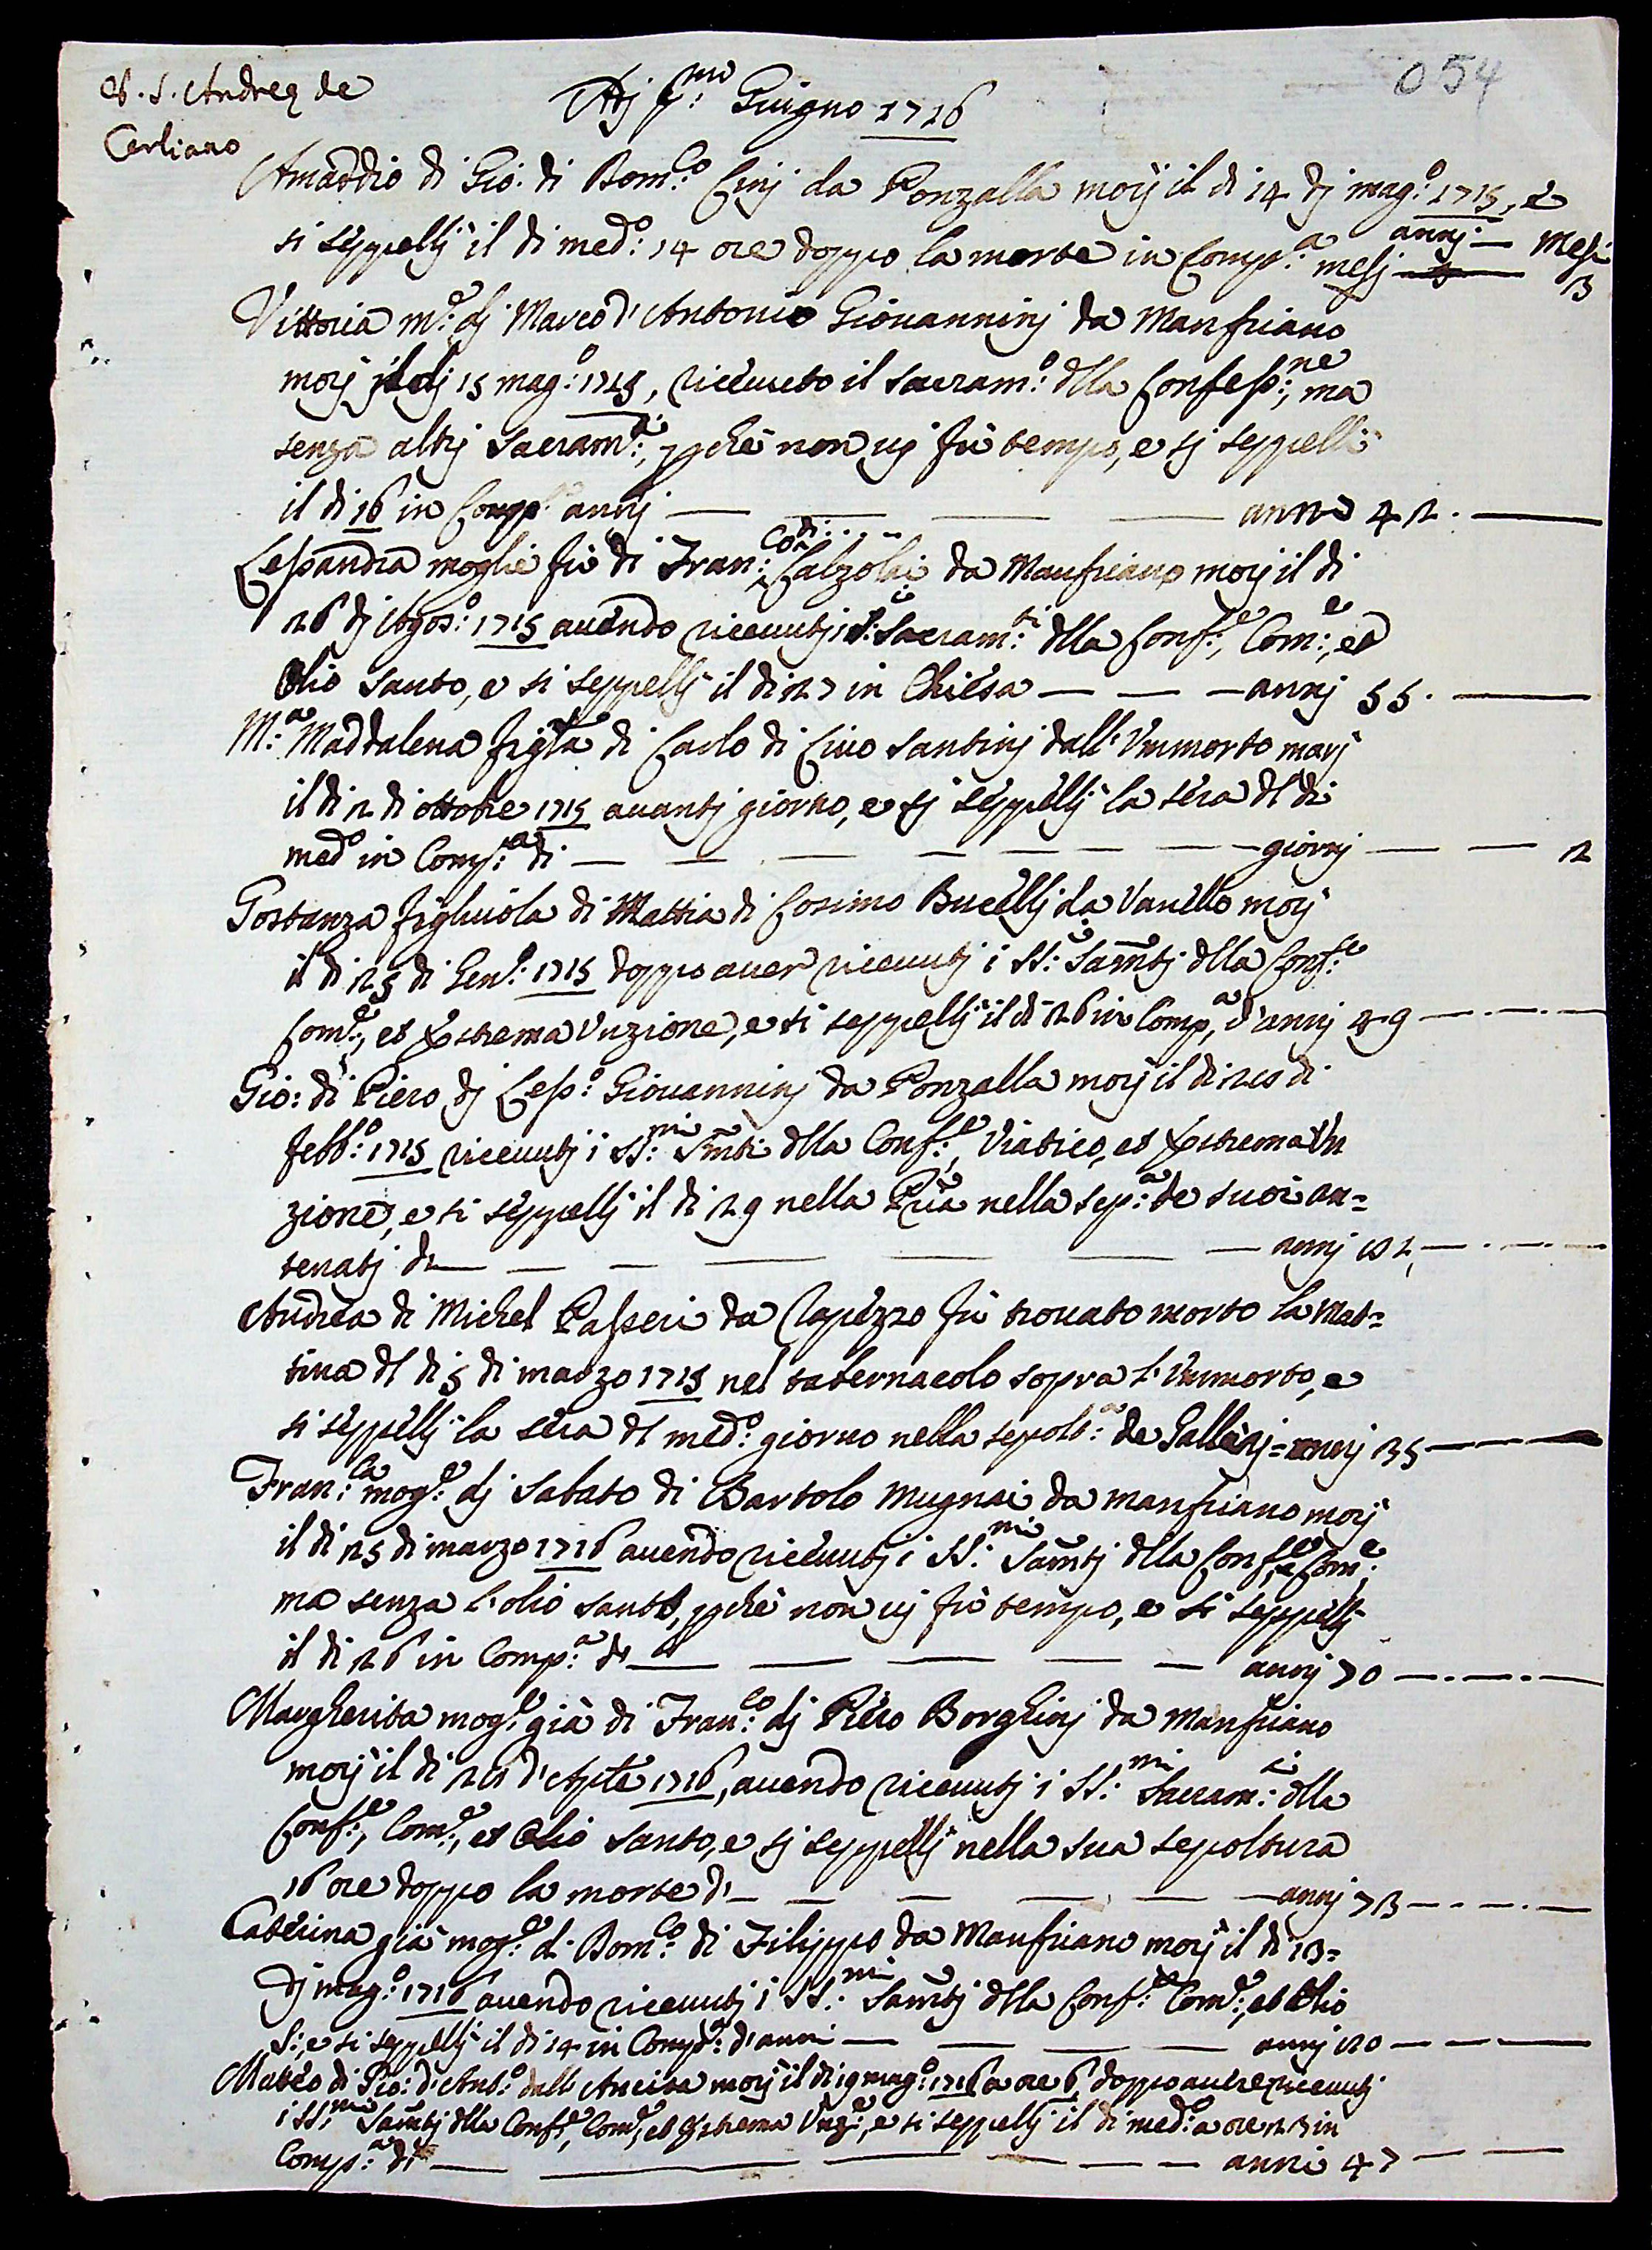 054
S. Andrea de
Cerliano
Adj p.mo Giugno 1716
Amaddio di Gio: di Dom.co Cinj da Ponzalla morj il di 14 dj mag.o 1715, e
si seppellj il di med.o 14 ore doppo la morte in Comp.a mesj annj — Mesi 3
Vittoria m.e dj Marco d'Antonio Giovanninj da Manfriano
morj il dj 15 mag.o 1715, riceuuto il Sacram.o dlla Confess.ne, ma
senza altrj Sacram.ti, pche non uj fu tempo, e sj seppellj
il di 16 in Comp.a annj — — — — anno 42. —
Lessandra moglie fu di Fran.co di .... Calzolai da Manfriano morj il di
26 dj Agos.o 1715 auendo riceuutj i S. Sacram.ti dlla Conf.e, Com.e, ed
Olio Santo, e si seppellj il di 27 in Chiesa — — — annj 55. —
M.a Maddalena figla di Carlo di Ciuo Santinj dall'Vmmorto morj
il di 2 di ottobre 1715 auantj giorno, e sj seppellj la sera dl di
med.o in Comp.a di — — — — — — — giornj — — 2
Gostanza figliuola di Mattia di Cosimo Bucellj da Vanello morj
il di 25 di Gen.o 1715 doppo auer riceuutj i SS. Samtj dlla Conf.e
Com.e, et Estrema Vnzione, e si seppellj il di 26 in Comp.a, d'annj 49 — . — . —
Gio: di Piero dj Less.o Giovanninj da Ponzalla morj il di 28 di
febb.o 1715 riceuutj i SS.mi Smti dlla Conf.e, Viatico, et Estrema Vn
zione, e si seppellj il di 29 nella Pria nella sep.a de suoi an=
tenatj di — — — — — — annj 82, — . — . —
Andrea di Michel Passeri da Rapezzo fu trouato morto la mat=
tina dl di 5 di marzo 1715 nel tabernacolo sopra l'Vmmorto, e
si seppellj la sera dl med.o giorno nella sepolt.a de Gallerj = annj 35 — — —
Fran.ca mog.e dj Sabato di Bartolo Mugnai da Manfriano morj
il di 25 di marzo 1716 auendo riceuutj i SS.mi Samtj dlla Conf.e e Com.e,
ma senza l'olio santo, pche non uj fu tempo, e si seppellj
il di 26 in Comp.a di — — — — — annj 70 — . — . —
Margherita mog.e già di Fran.co dj Piero Borghinj da Manfriano
morj il di 28 d'Aprle 1716, auendo riceuutj i SS.mi Sacram.i dlla
Conf.e, Com.e, et Olio Santo, e sj seppellj nella sua sepoltura
16 ore doppo la morte di — — — — — annj 73 — - — . —
Caterina già mog.e di Dom.co di Filippo da Manfriano morj il di 13=
dj mag.o 1716 auendo riceuutj i SS.mi Samtj dlla Conf.e Com.e, et Olio
S., e si seppellj il di 14 in Comp.a d'anni — — — — annj 80 — — —
Matteo di Gio: d'Ant.o dall'Ancisa morj il di 19 mag.o 1716 a ore 6, doppo auere riceuutj
i SS.mi Samtj dlla Conf.e, Com.e, et Estrema Vnz.e, e si seppellj il di med.o a ore 23 in
Comp.a di — — — — — — anni 47 — —